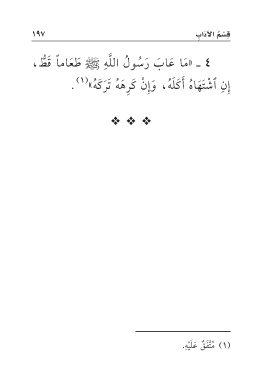 قِسْمُ الآدَابِ
١٩٧
٤ ـ «مَا عَابَ رَسُولُ اللَّهِ ﷺ طَعَاماً قَطُّ،
إِنِ ٱشْتَهَاهُ أَكَلَهُ، وَإِنْ كَرِهَهُ تَرَكَهُ»(١).
(١) مُتَّفَقٌ عَلَيْهِ.